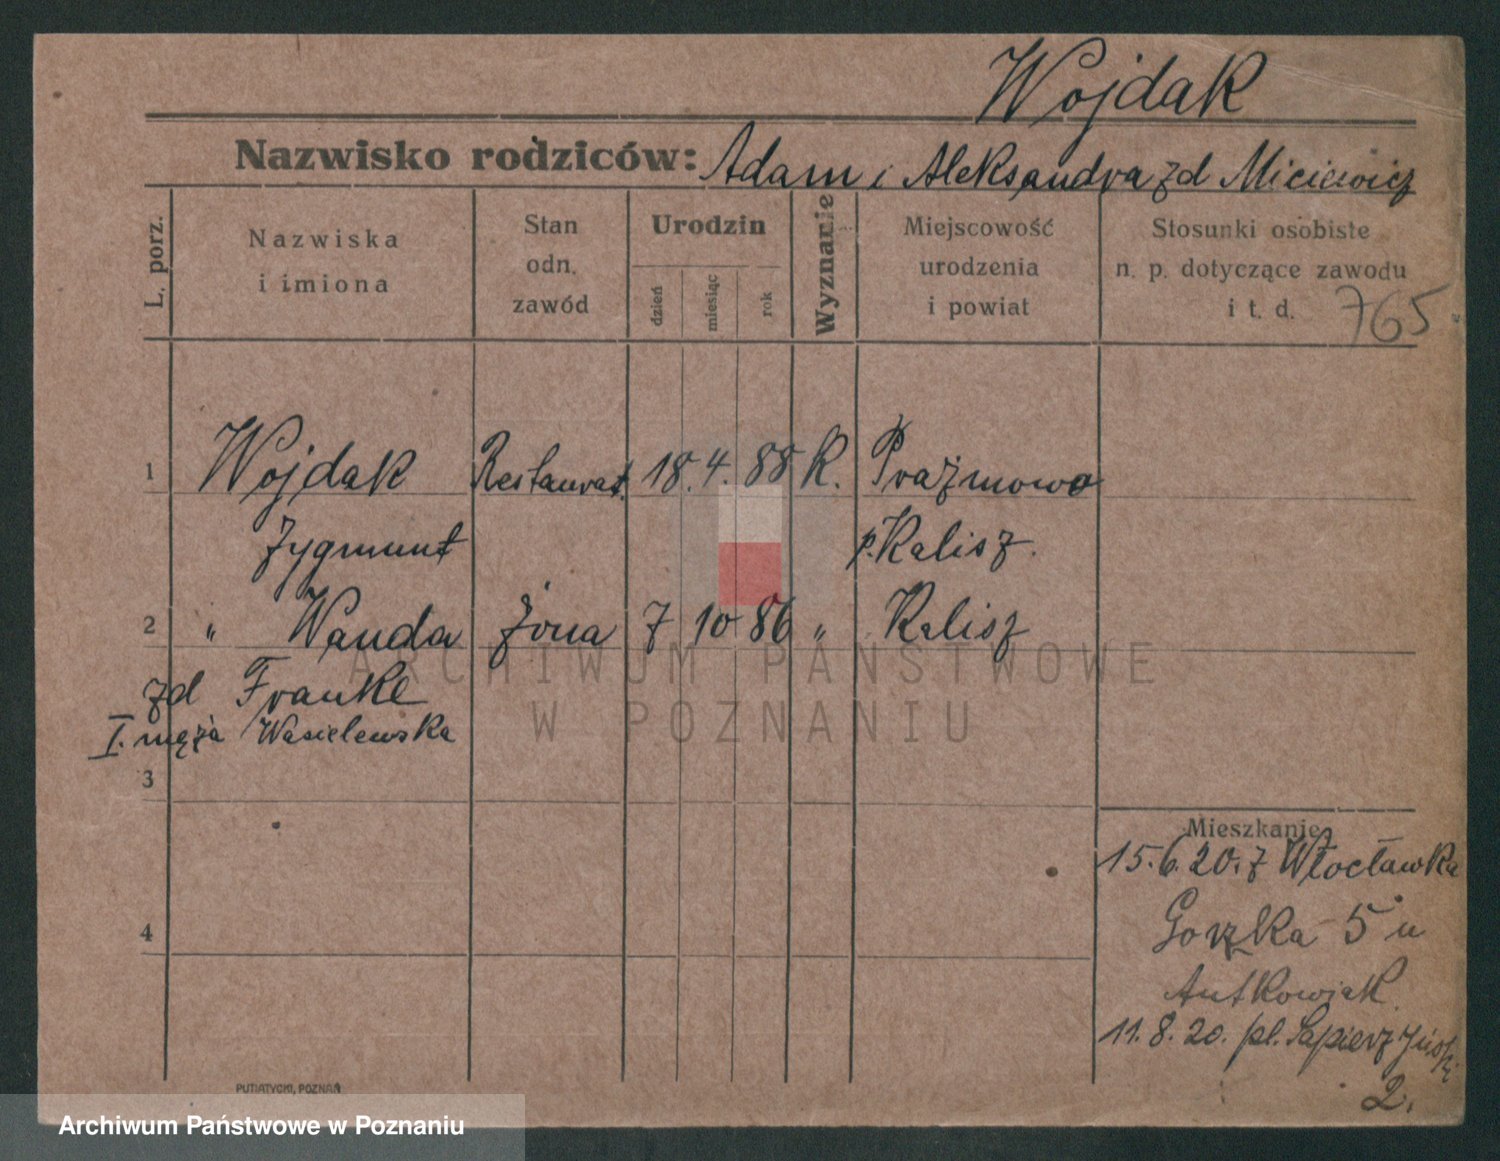 Wojdak
Nazwisko rodziców: Adam i Aleksandra zd Miciewicz
L. porz.
Nazwiska i imiona
Stan odn. zawód
Urodzin
dzień
miesiąc
rok
Wyznanie
Miejscowość urodzenia i powiat
Stosunki osobiste n. p. dotyczące zawodu i t. d.
765
1 Wojdak Restaurat. 18. 4. 88 K. Prażmowo
Zygmunt p. Kalisz.
2 " Wanda żona 7 10 86 " Kalisz
zd Franke
I. męża Wasielewska
3
4
Mieszkanie
15.6.20. z Włocławka
Gorzka 5 u
Antkowiak
11.8.20. pl. Sapierzyński
2.
PUTIATYCKI, POZNAŃ
ARCHIWUM PAŃSTWOWE
W POZNANIU
Archiwum Państwowe w Poznaniu